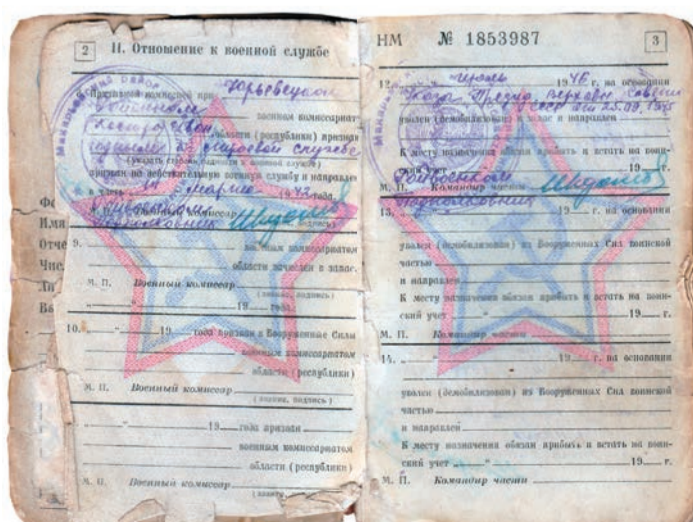 2
II. Отношение к военной службе
8. Призывной комиссией при Юрьевецком
военном комиссариат
области (республики) признан
годным к строевой службе
(указать степень годности к военной службе)
призван на действительную военную службу и направлен
в часть 14 " марта 1942 года.
М. П. Военный комиссар
Подполковник
9.
военным комиссариатом
области зачислен в запас.
М. П. Военный комиссар
(звание, подпись)
" " 19 года.
10. " " 19 года призван в Вооруженные Силы
военным комиссариатом
области (республики)
М. П. Военный комиссар
(звание, подпись)
" " 19 года призван
военным комиссариатом
области (республики)
М. П. Военный комиссар
(звание
НМ № 1853987
3
12. " июль 1946 г. на основании
Указа През Верховн Совета
СССР от 25.09.1945
уволен (демобилизован) в запас и направлен
К месту назначения обязан прибыть и встать на воинский
М. П. Командир части
Подполковник
13. " " 19 г. на основании
уволен (демобилизован) из Вооруженных Сил воинской
частью
и направлен
К месту назначения обязан прибыть и встать на воин-
ский учет " 19 г.
М. П. Командир части
14. " " 19 г. на основании
уволен (демобилизован) из Вооруженных Сил воинской
частью
и направлен
К месту назначения обязан прибыть и встать на воин-
ский учет " 19 г.
М. П. Командир части